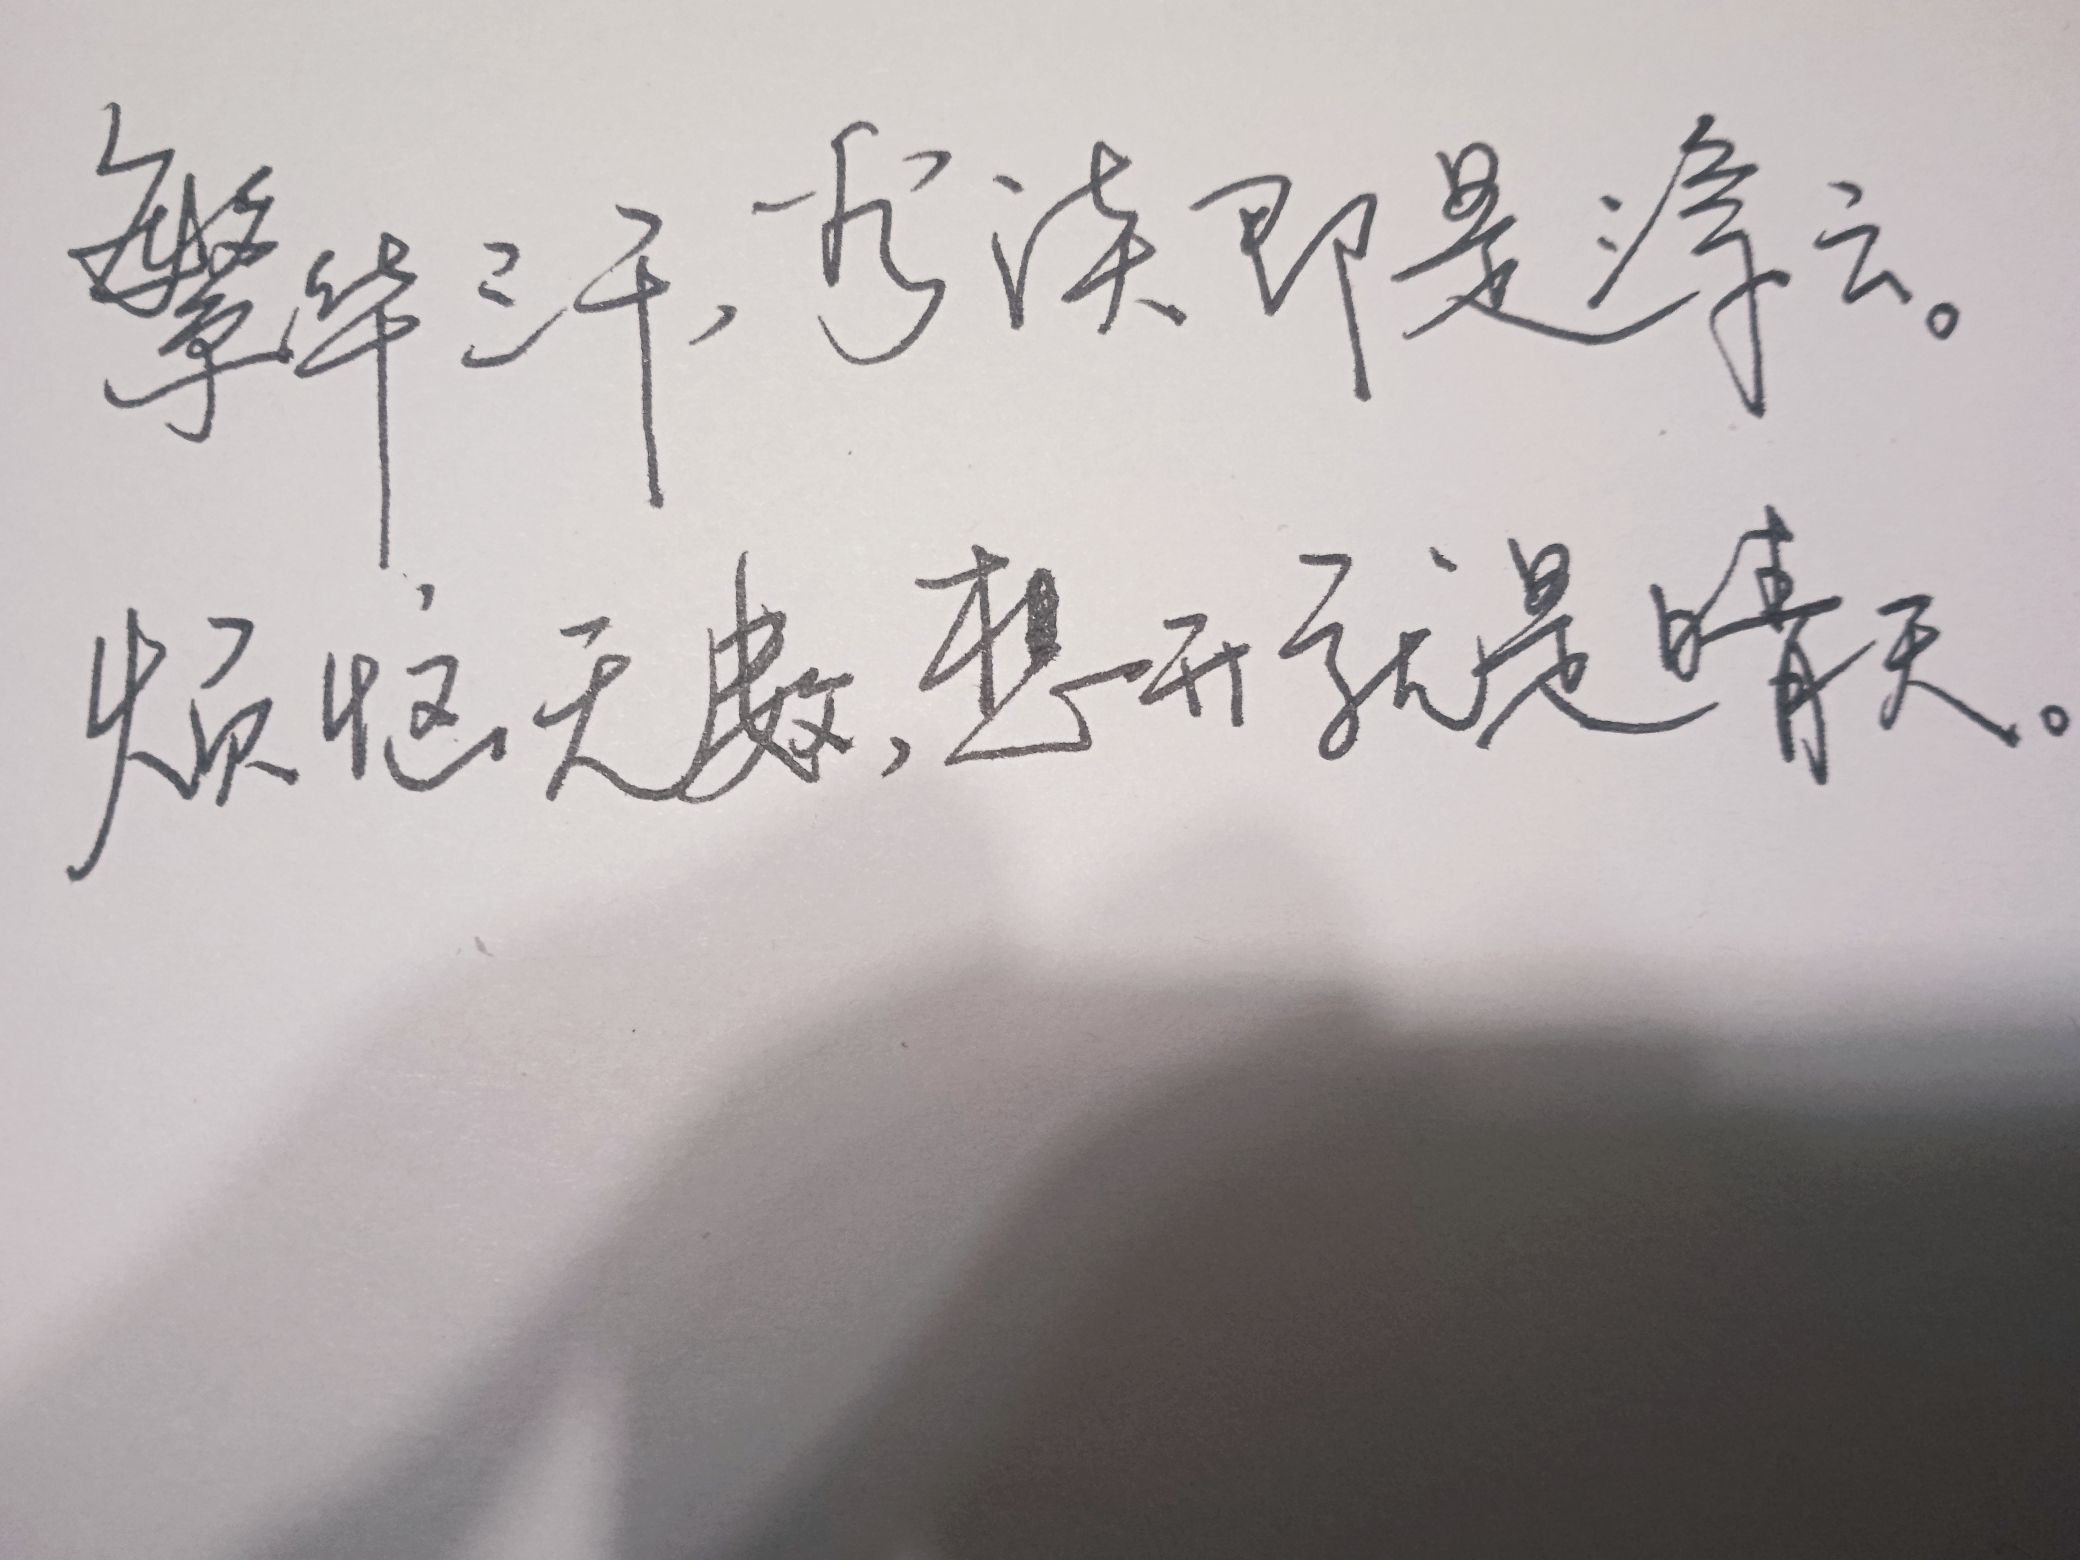 繁华三千，看淡即是浮云。
烦恼无数，想开就是晴天。